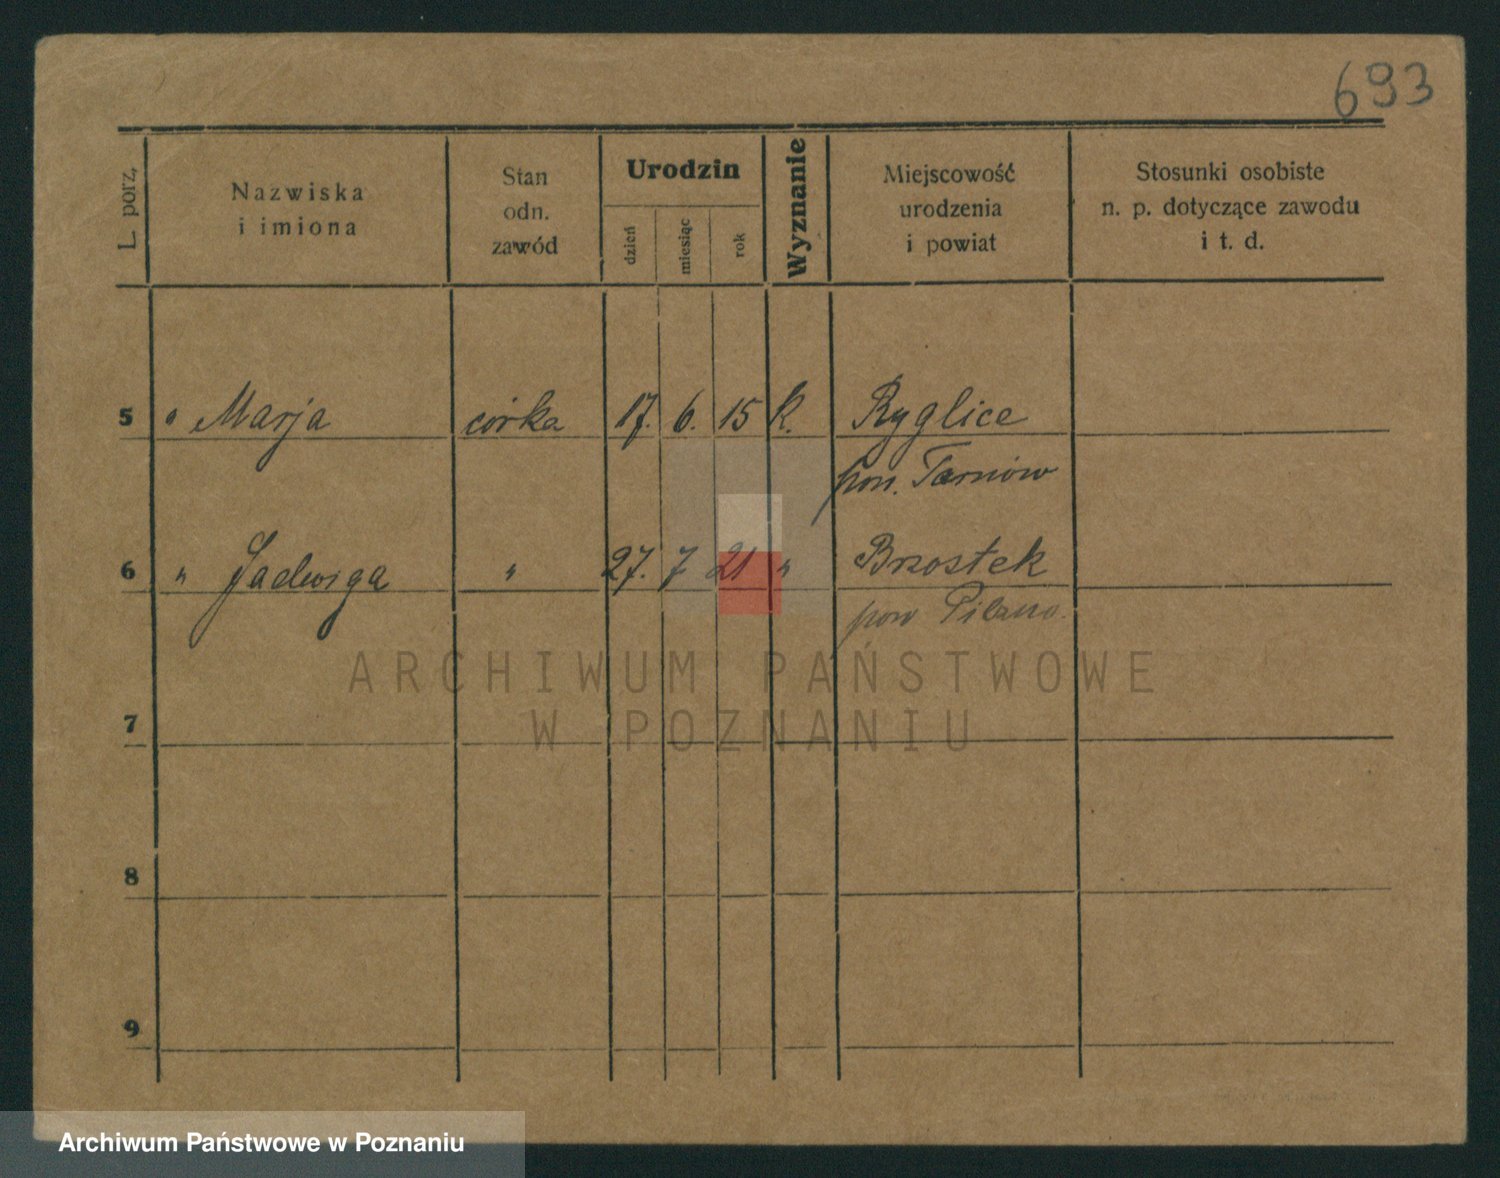 693
L. porz.
Nazwiska
i imiona
Stan
odn.
zawód
Urodzin
dzień
miesiąc
rok
Wyznanie
Miejscowość
urodzenia
i powiat
Stosunki osobiste
n. p. dotyczące zawodu
i t. d.
5 " Marja córka 17. 6. 15 k. Ryglice
pow. Tarnów
6 " Jadwiga " 27. 7 21 " Brzostek
pow Pilzno.
ARCHIWUM PAŃSTWOWE
W POZNANIU
7
8
9
Archiwum Państwowe w Poznaniu